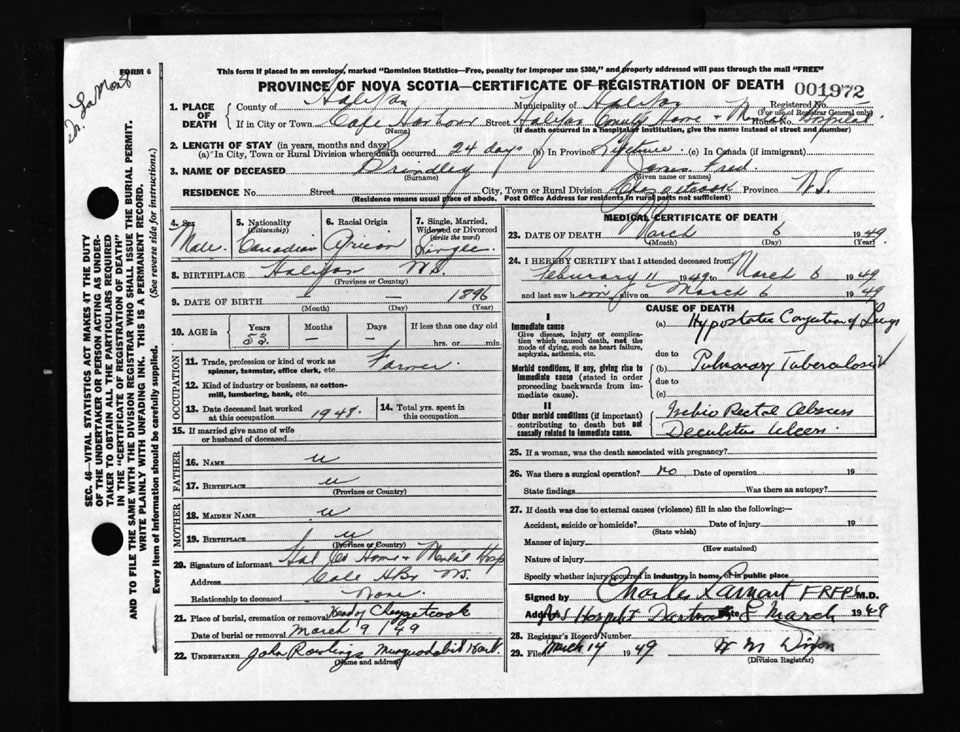 Dr. LaMont
FORM 6
This form if placed in an envelope, marked "Dominion Statistics—Free, penalty for improper use $300," and properly addressed will pass through the mail "FREE"
PROVINCE OF NOVA SCOTIA—CERTIFICATE OF REGISTRATION OF DEATH 001972
1. PLACE OF DEATH County of Halifax Municipality of Halifax Registered No.
(For use of Registrar General only)
If in City or Town Cole Harbour Street Halifax County Home + Mental Hospital House No.
(Name) (If death occurred in a hospital or institution, give the name instead of street and number)
2. LENGTH OF STAY (in years, months and days)
(a) In City, Town or Rural Division where death occurred 24 days (b) In Province Lifetime (c) In Canada (if immigrant)
3. NAME OF DECEASED Brindley James Fred
(Surname) (Given name or names)
RESIDENCE No. Street City, Town or Rural Division Chezzetcook Province N.S.
(Residence means usual place of abode. Post Office Address for residents in rural parts not sufficient)
4. Sex Male
5. Nationality (Citizenship) Canadian
6. Racial Origin
7. Single, Married, Widowed or Divorced (write the word) Single
8. BIRTHPLACE Halifax N.S.
(Province or County)
9. DATE OF BIRTH — — 1896
(Month) (Day) (Year)
10. AGE in Years 53 Months — Days — If less than one day old
hrs. or min.
OCCUPATION
11. Trade, profession or kind of work as spinner, teamster, office clerk, etc. Farmer
12. Kind of industry or business, as cotton-mill, lumbering, bank, etc.
13. Date deceased last worked at this occupation 1948.
14. Total yrs. spent in this occupation
15. If married give name of wife or husband of deceased
FATHER
16. Name u
17. Birthplace u
(Province or Country)
MOTHER
18. Maiden Name u
19. Birthplace u
(Province or Country)
20. Signature of informant Hal Co Home + Mental Hosp
Address Cole Hbr N.S.
Relationship to deceased None
21. Place of burial, cremation or removal Head of Chezzetcook
Date of burial or removal March 9 / 49
22. UNDERTAKER John Rowlings Musquodoboit Harb.
(Name and address)
MEDICAL CERTIFICATE OF DEATH
23. DATE OF DEATH March 6 1949
(Month) (Day) (Year)
24. I HEREBY CERTIFY that I attended deceased from
Feburary 11 1949 to March 6 1949
and last saw him alive on March 6 1949
CAUSE OF DEATH
I
Immediate cause
Give disease, injury or complication which caused death, not the mode of dying, such as heart failure, asphyxia, asthenia, etc.
(a) Hypostatic Congestion of Lungs
due to
Morbid conditions, if any, giving rise to immediate cause (stated in order proceeding backwards from immediate cause).
(b) Pulmonary Tuberculosis
due to
(c)
II
Other morbid conditions (if important) contributing to death but not causally related to immediate cause.
Ischio Rectal Abscess
Decubitus Ulcers
25. If a woman, was the death associated with pregnancy?
26. Was there a surgical operation? no Date of operation 19
State findings Was there an autopsy?
27. If death was due to external causes (violence) fill in also the following:—
Accident, suicide or homicide? Date of injury 19
(State which)
Manner of injury
(How sustained)
Nature of injury
Specify whether injury occurred in industry, in home, or in public place
Signed by Charles Lamont FRFPS M.D.
Address N.S Hospital Dartmouth Date 8 March 1949
28. Registrar's Record Number
29. Filed March 14 1949
(Division Registrar)
SEC. 46—VITAL STATISTICS ACT MAKES IT THE DUTY
OF THE UNDERTAKER OR PERSON ACTING AS UNDERTAKER TO OBTAIN ALL THE PARTICULARS REQUIRED
IN THE "CERTIFICATE OF REGISTRATION OF DEATH"
AND TO FILE THE SAME WITH THE DIVISION REGISTRAR WHO SHALL ISSUE THE BURIAL PERMIT.
WRITE PLAINLY WITH UNFADING INK. THIS IS A PERMANENT RECORD.
Every item of information should be carefully supplied. (See reverse side for instructions.)